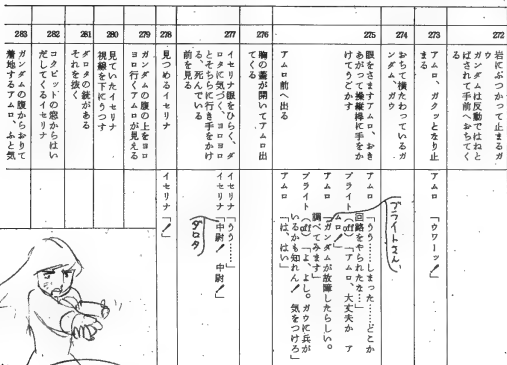 272
岩にぶつかって止まるガ
ウ
ガンダムは反動ではねと
ばされて手前へおちてく
る
273
アムロ、ガクッとなり止
まる
アムロ 「ウワーッ!」
274
おちて横たわっているガ
ンダム、ガウ
275
眼をさますアムロ、おき
あがって操縦桿に手をか
けてうごかす
アムロ 「うう……しまった……どこか
回路をやられたな…」
ブライト (off)「アムロ、大丈夫か ア
ムロ!」
ブライトさん、
アムロ 「ガンダムが故障したらしい。
調べてみます」
ブライト (off)「よ、よし。ガウに兵が
いるかも知れん! 気をつけろ」
アムロ 「は、はい」
アムロ前へ出る
276
胸の蓋が開いてアムロ出
てくる
277
イセリナ眼をひらく、ダ
ロタに気づく、ヨロヨロ
とそちらに行き手をかけ
る、死んでいる
前を見る
イセリナ 「うう……」
イセリナ 「中尉! 中尉!」
ダロタ
278
見つめるイセリナ
イセリナ 「!」
279
ガンダムの腹の上をヨロ
ヨロ行くアムロが見える
280
見ていたイセリナ
視線を下にうつす
281
ダロタの銃がある
それを抜く
282
コクピットの窓からはい
だしてくるイセリナ
283
ガンダムの腹からおりて
着地するアムロ、ふと気